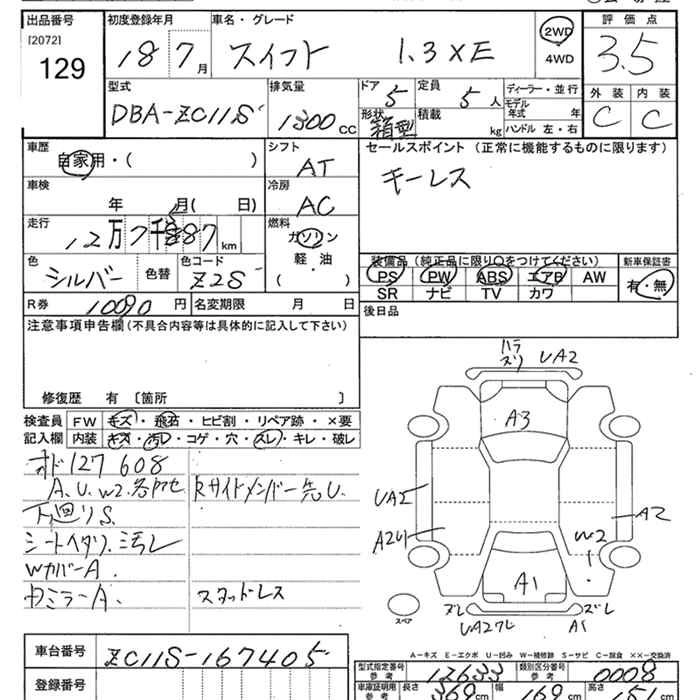 出品番号 初度登録年月 車名・グレード 評価点
[2072]
129 18 7月 スイフト 1.3 XE 2WD 4WD 3.5
型式 排気量 ドア 定員 ディーラー・並行 外装 内装
DBA-ZC11S 1300cc 5 5人 モデル年式 年
形状 箱型 積載 kg ハンドル 左・右 C C
車歴 シフト セールスポイント (正常に機能するものに限ります)
自家用・( ) AT キーレス
車検 冷房
年 月( 日) AC
走行 燃料
12万7千887km ガソリン
色 色コード 軽・油 装備品(純正品に限り○をつけてください) 新車保証書
シルバー 色替 Z2S ( ) PS PW ABS エアB AW 有・無
SR ナビ TV カワ
R券 10090円 名変期限 月 日 後日品
注意事項申告欄(不具合内容等は具体的に記入して下さい)
修復歴 有 〔箇所 〕
検査員 FW キズ・飛石・ヒビ割・リペア跡・×要
記入欄 内装 キズ・汚レ・コゲ・穴・スレ・キレ・破レ
127608
A.U.W2.各 Rサイドメンバー先U.
下廻りS.
シートヘタリ.汚レ
WカバーA.
ミラーA. スタッドレス
UA2
A3
UA2 A2
W2
A1
ズレ ズレ
スペア UA2 A1
A-キズ E-エクボ U-凹み W-補修跡 S-サビ C-腐食 ××-交換済
車台番号 ZC11S-167405
型式指定番号 参考 12633 類別区分番号 参考 0008
登録番号 車庫証明用 参考 長さ 369cm 幅 169cm 高さ cm